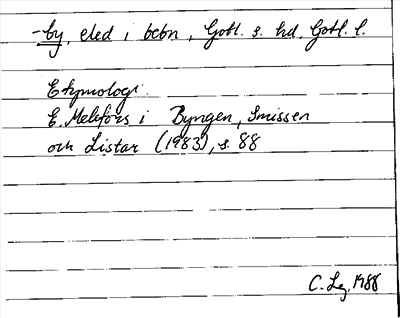 -by, eled i bebn, Gotl. s. hd, Gotl. l.
Etymologi.
E. Melefors i Byngen, Smissen
och Listar (1983), s. 88
C. Leg. 1988